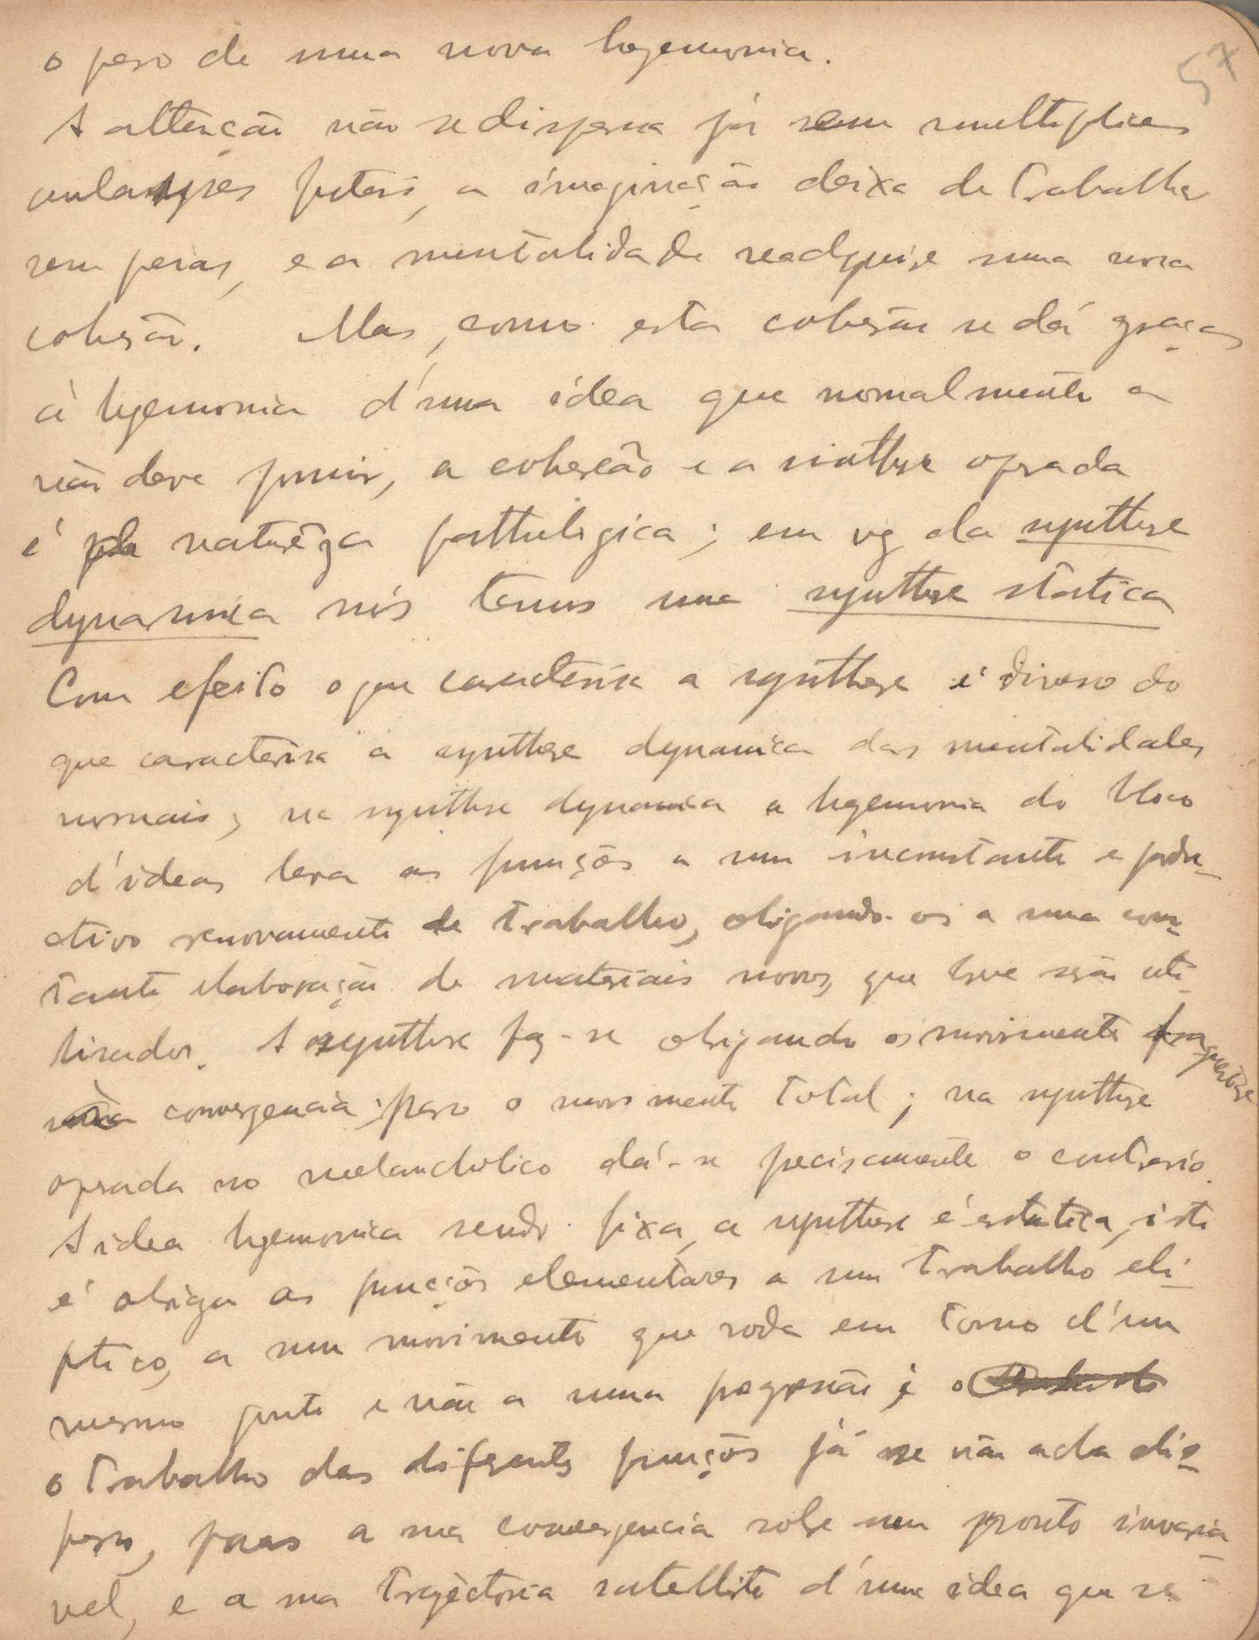 57
o peso de uma nova hegemonia.
A attenção não se dispersa já em multiplices
futeis, a imaginação deixa de trabalhar
sem peias, e a mentalidade readquire uma nova
cohesão. Mas, como esta cohesão se dá graças
á hgemonia d'uma idea que normalmente a
não deve possuir, a cohesão e a sinthese oprada
é de naturêza pathologica; em vez da synthese
dynamica nós temos uma synthese statica
Com efeito o que caracterisa a synthese é diverso do
que caracterisa a synthese dynamica das mentalidades
normais; na synthese dynamica a hgemonia do bloco
d'ideas leva as funções a um inconstante e produ-
ctivo renovamento de trabalho, obrigando-os a uma cons-
tante elaboração de materiais novos, que breve serão uti-
lisados. A synthese faz-se obrigando os movimentos
convergencia para o movimento total; na synthese
oprada no melancholico dá-se precisamente o contrario.
A idea hgemonica sendo fixa, a synthese é estatica, isto
é obriga as funções elementares a um trabalho eli-
ptico, a um movimento que roda em torno d'um
mesmo ponto e não a uma progressão; e o
o trabalho das diferentes funções já se não acha dis-
perso, mas a sua convergencia sobre um ponto invaria-
vel, e a sua trajectoria satellite d'uma idea que se